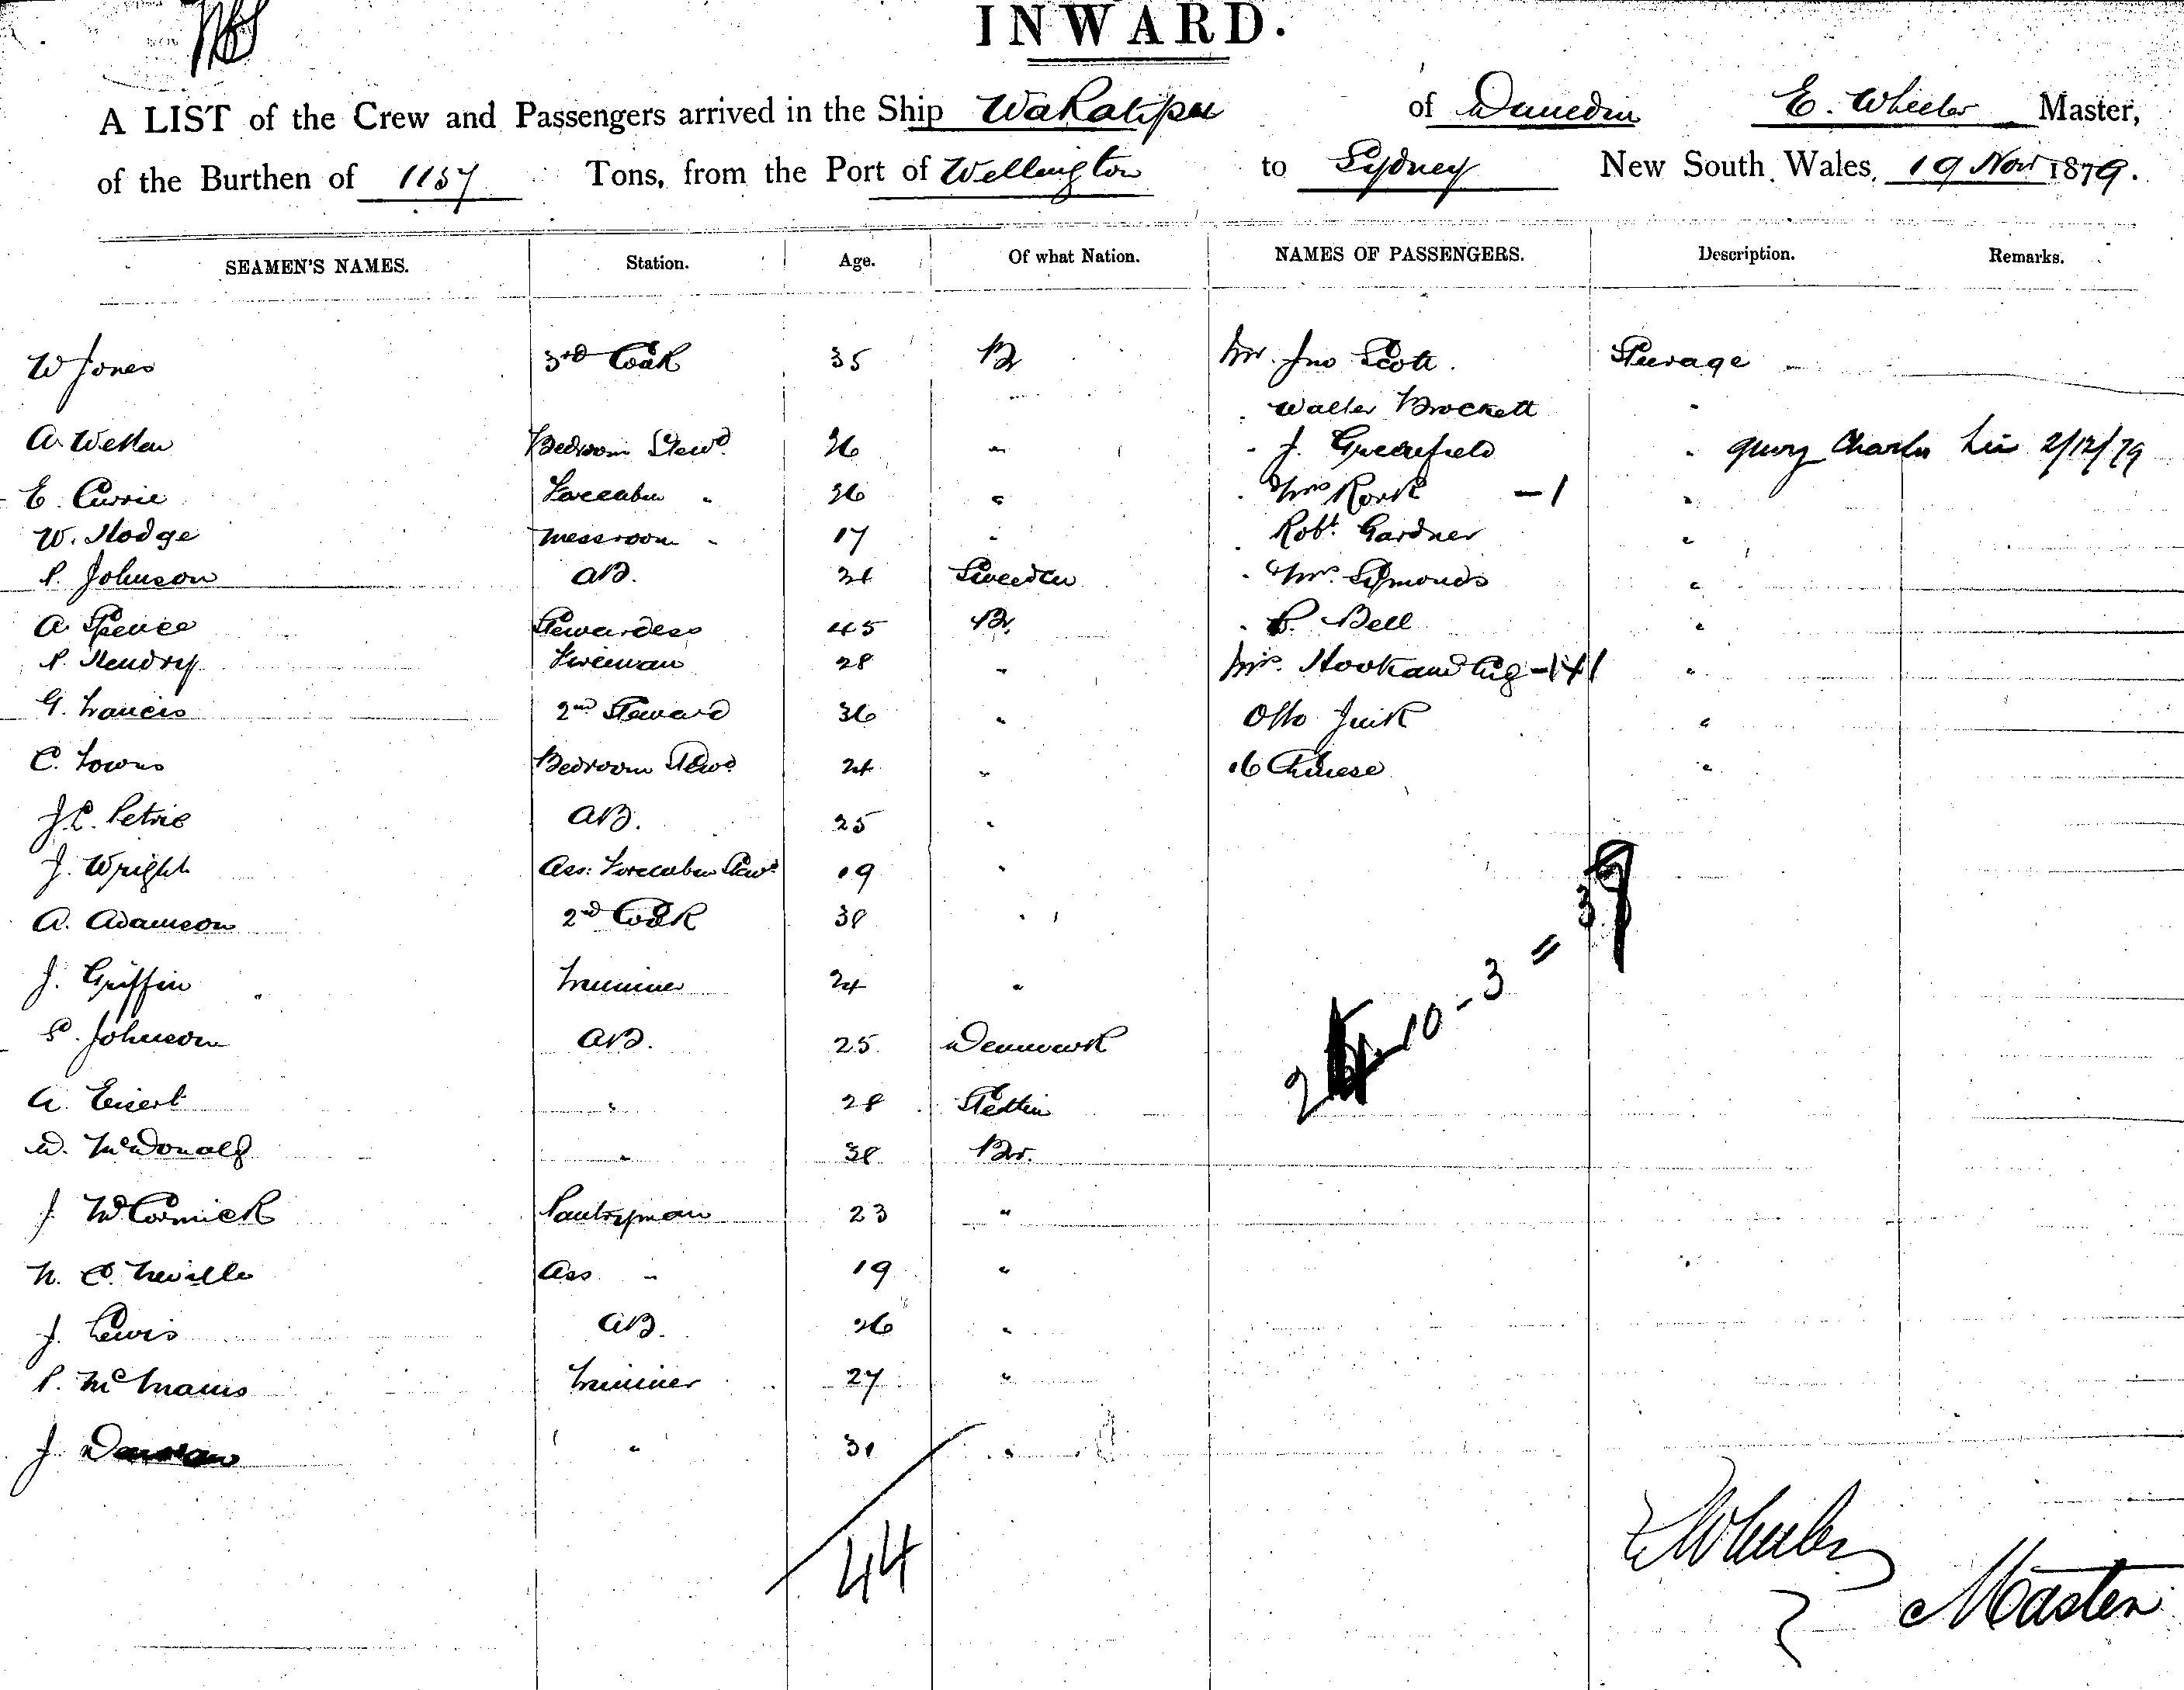 INWARD.
A LIST of the Crew and Passengers arrived in the Ship Wakatipu of Dunedin E. Wheeler Master,
of the Burthen of 1157 Tons, from the Port of Wellington to Sydney New South Wales, 19 Nov 1879.
SEAMEN'S NAMES. Station. Age. Of what Nation. NAMES OF PASSENGERS. Description. Remarks.
W Jones 3rd Cook 35 Br Mr. Jno Scott. Steerage
Walter Brockett "
A. Weller Bedroom Stewd. 26 " " J. Greenfield " query Charles 2/12/79
E. Currie Forecabin " 26 " " Mrs Rork -1 "
W. Hodge Messroom " 17 " " Robt. Gardner "
P. Johnson AB. 21 Sweeden " Mrs. Symonds "
A. Spence Stewardess 45 Br. " Bell "
P. Hendry Fireman 28 " Mrs. Hook and -1+1 "
G. Francis 2nd Steward 36 " Otto "
C. Towns Bedroom Stewd 24 " 16 Chinese "
J.C. Petrie AB. 25 "
J. Wright Ass: Forecabin Stewd 19 "
A. Adamson 2nd Cook 38 "
J. Griffin Trimmer 24 "
P. Johnson AB. 25 Denmark
A. " 28 Stettin
D. McDonald " 38 Br.
J McCormick Pantryman 23 "
N. C. Neville Ass " 19 "
J. Lewis AB. 26 "
P. McManis Trimmer 27 "
J. " 31 "
10 - 3 =
44
E Wheeler
Master